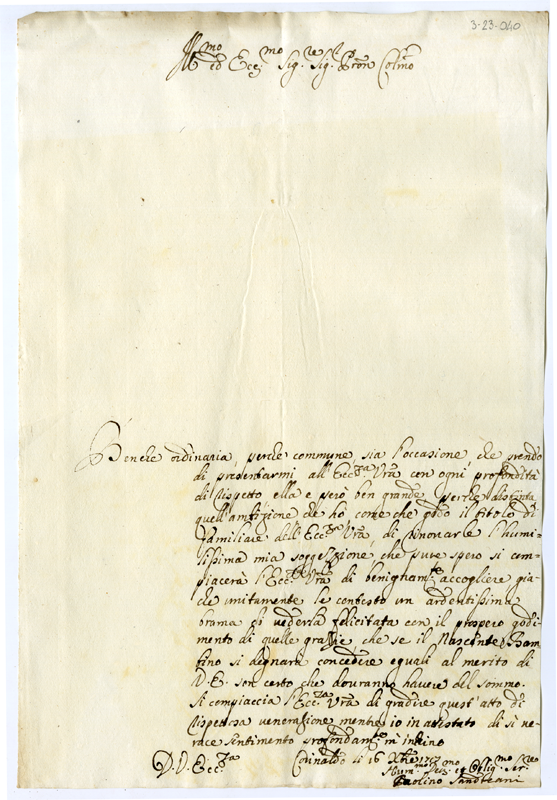 3-23-040
Ill.mo ed Ecc.mo Sig.re Sig.r Pron Col.mo
Benche ordinaria, perche commune sia l'occasione che prendo
di presentarmi all'Ecc.za Vra con ogni profondità
di rispetto ella e però ben grande perche
quell'ambizione che ho come che godo il titolo di
familiare dell'Ecc.za Vra, di rinovarle l'humi-
lissima mia soggezzione che pure spero si com-
piacerà l'Ecc.za Vra di benignam.te accogliere gia-
che unitamente le contesto un ardentissima
brama di vederla felicitata con il prospero godi-
mento di quelle grazie che se il Nascente Bam
bino si degnarà concedere eguali al merito di
V. E. son certo che dovranno havere del sommo.
Si compiaccia l'Ecc.za Vra di gradire quest'atto di
rispettosa venerazione mentre io in attestato di si ve-
race sentimento profondam.te m'inkino
D. V. Ecc.za li 16 Xbre
Hum.mo et Oblig.mo Ser.re
Paolino